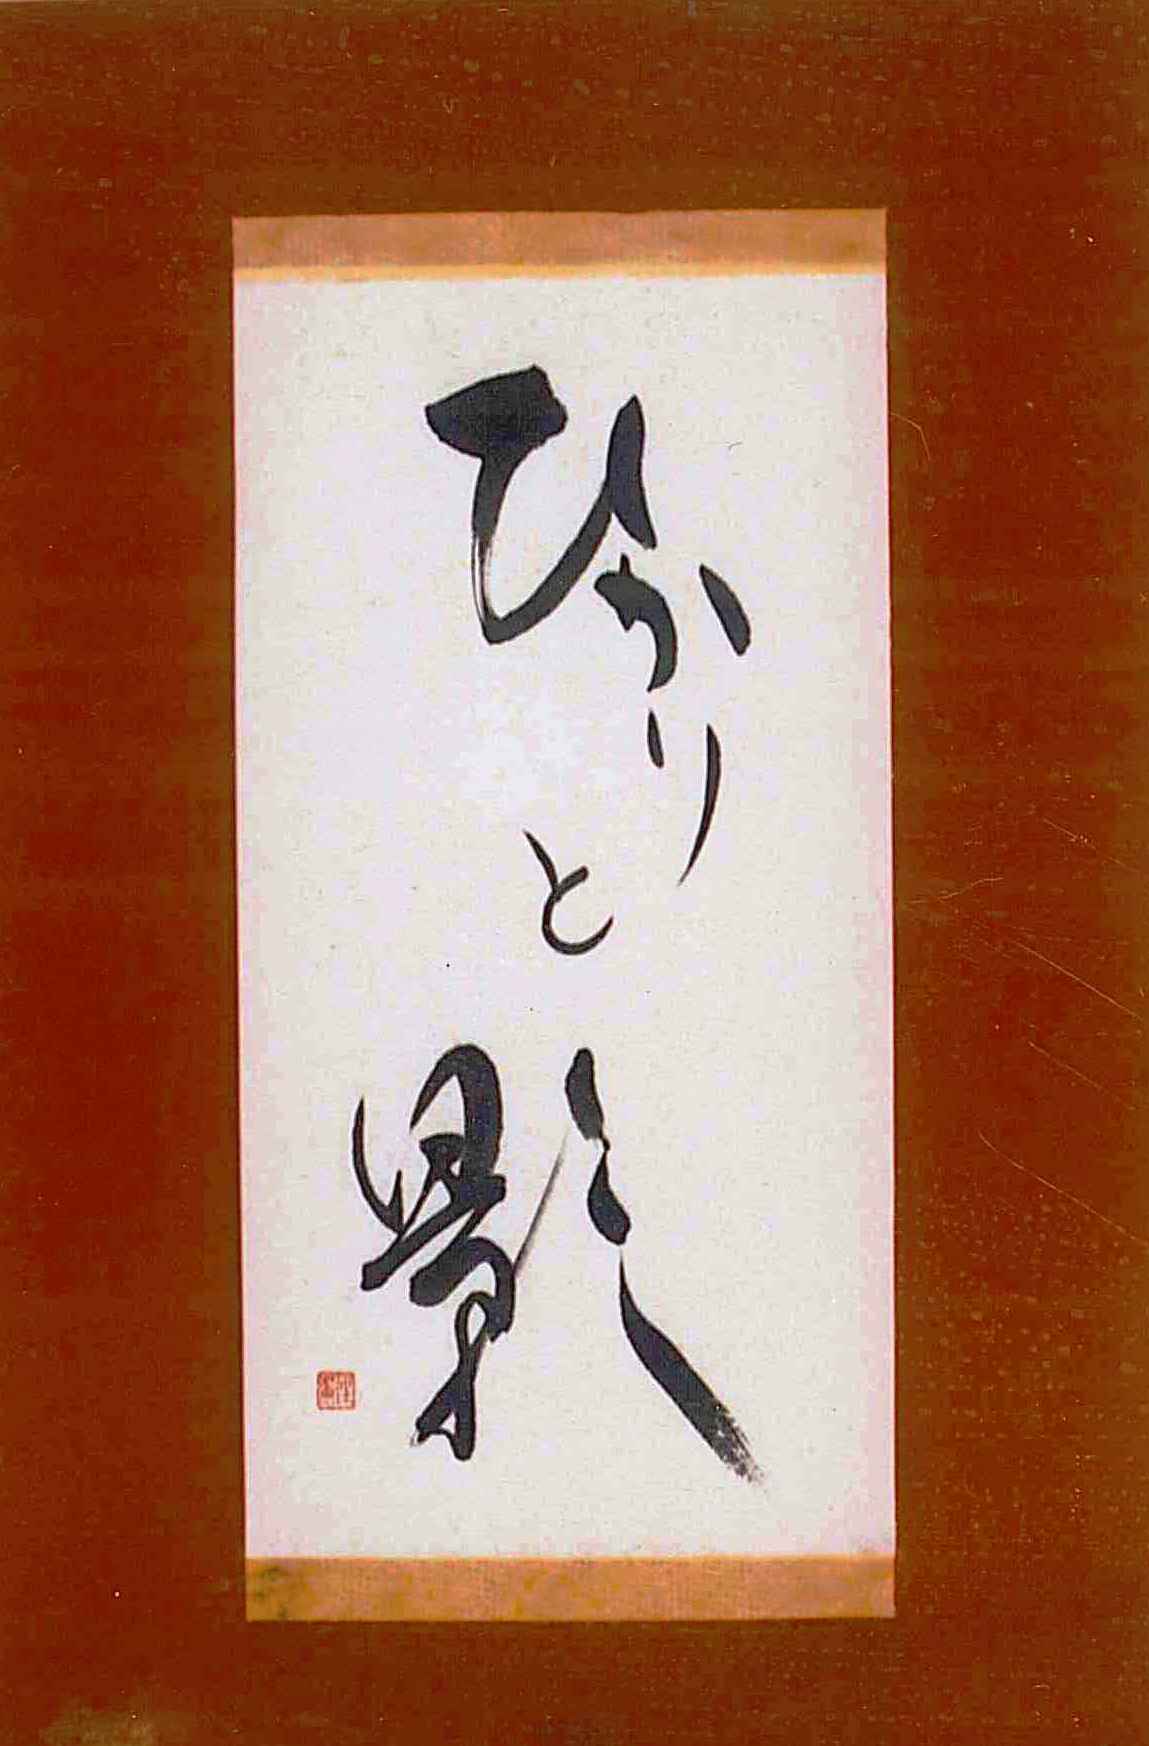 ひかりと影